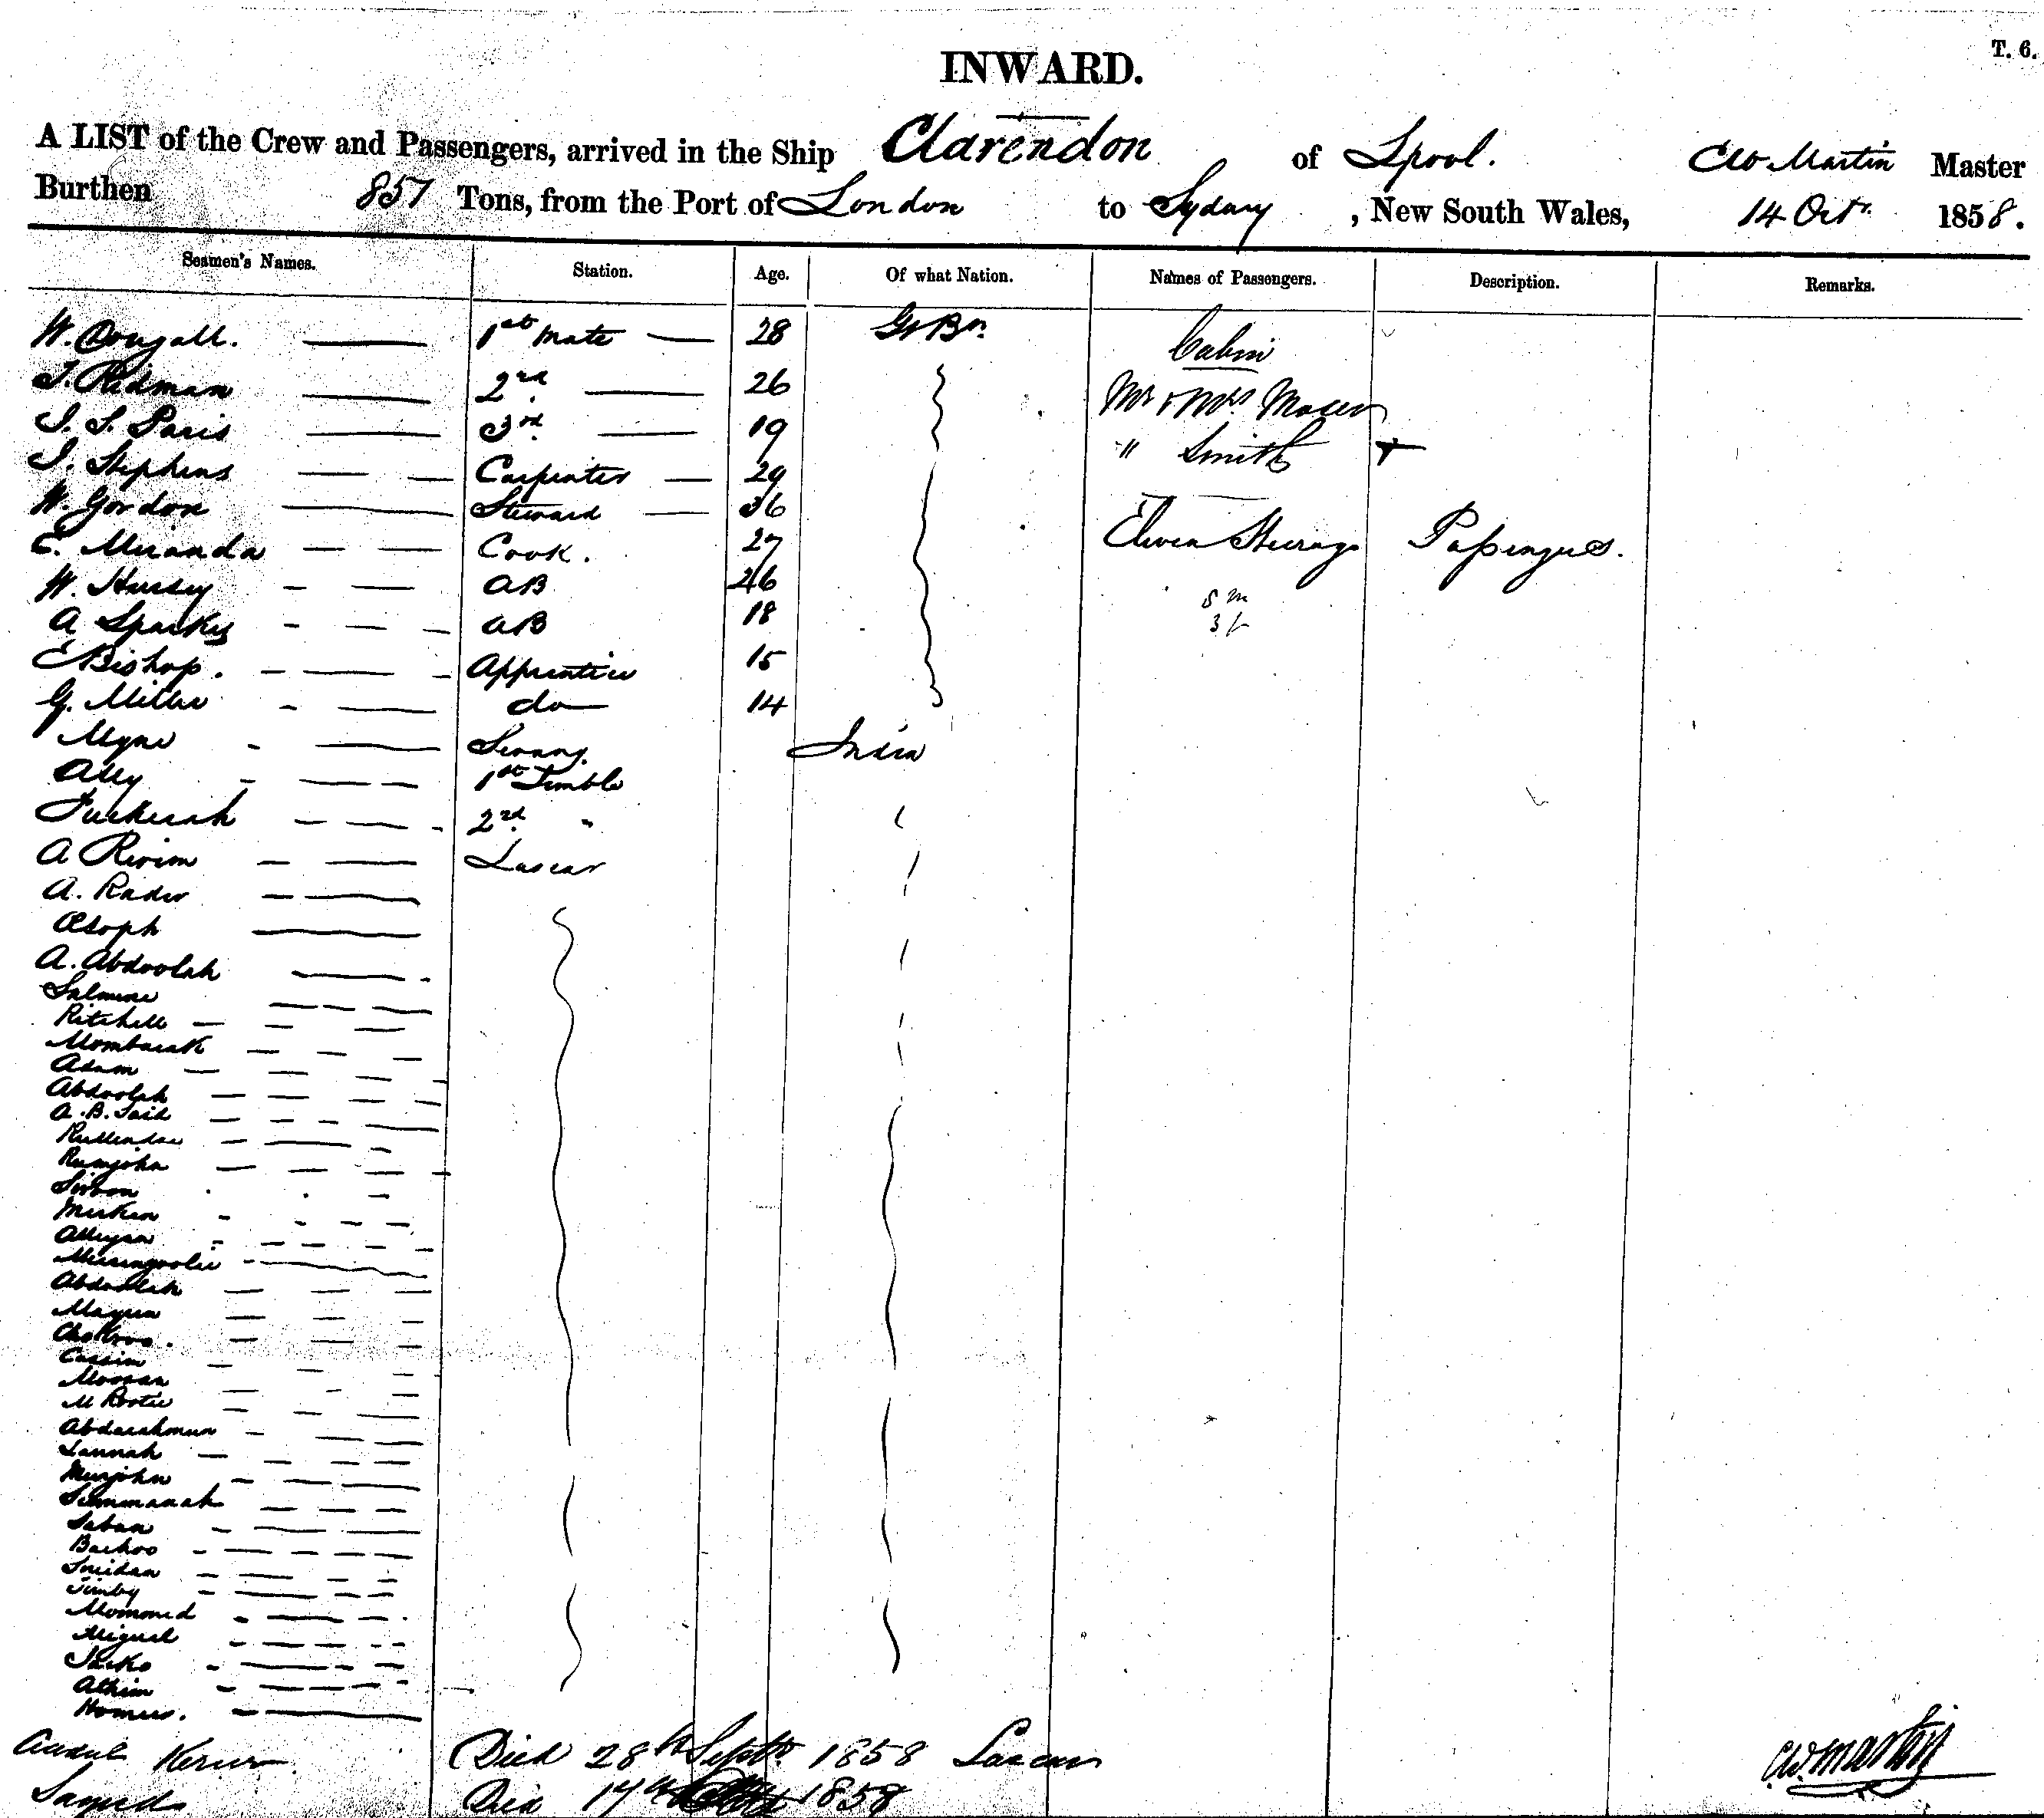 T. 6.
INWARD.
A LIST of the Crew and Passengers, arrived in the Ship Clarendon of Lpool. CW Martin Master
Burthen 857 Tons, from the Port of London to Sydney, New South Wales, 14 Octr 1858.
Seamen's Names. Station. Age. Of what Nation. Names of Passengers. Description. Remarks.
W. Dougall. 1st Mate 28 Gt Bn. Cabin
T. Redman 2nd 26 Mr & Mrs
J. S. Paris 3rd 19 " Smith
J. Stephens Carpenter 29
W. Gordon Steward 36
E. Miranda Cook. 27 Eleven Steerage Passengers.
W. Hussey AB 26 8 m
A Sparkes AB 18 3 f
E Bishop. Apprentice 15
G. Miller do 14
Serang India
Ally 1st Tindle
2nd "
A Lascar
A. Rader
Esoph
A. Abdoolah
Salmine
Ritchell
Mombarak
Adam
Abdoolah
A. B. Said
Rumjohn
Abdoolah
Cassim
Moosan
Abdarahmun
Lannah
Murjohn
Summanah
Saban
Bachoo
Timby
Mommed
Miguel
Athim
Homer.
Died 28th Septr 1858 Lascar
Died 17th 1858
C.W. Martin